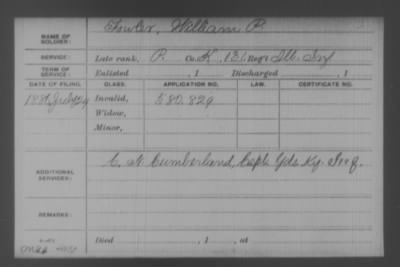 NAME OF SOLDIER: Fowler, William P.
SERVICE: Late rank, P Co. K, 131 Reg't Ills Inf
TERM OF SERVICE: Enlisted , 1 Discharged , 1
DATE OF FILING. CLASS. APPLICATION NO. LAW. CERTIFICATE NO.
1886 July 29 Invalid, 580.829
Widow,
Minor,
C. N. Cumberland, Capt
ADDITIONAL SERVICES:
REMARKS:
Died , 1 , at